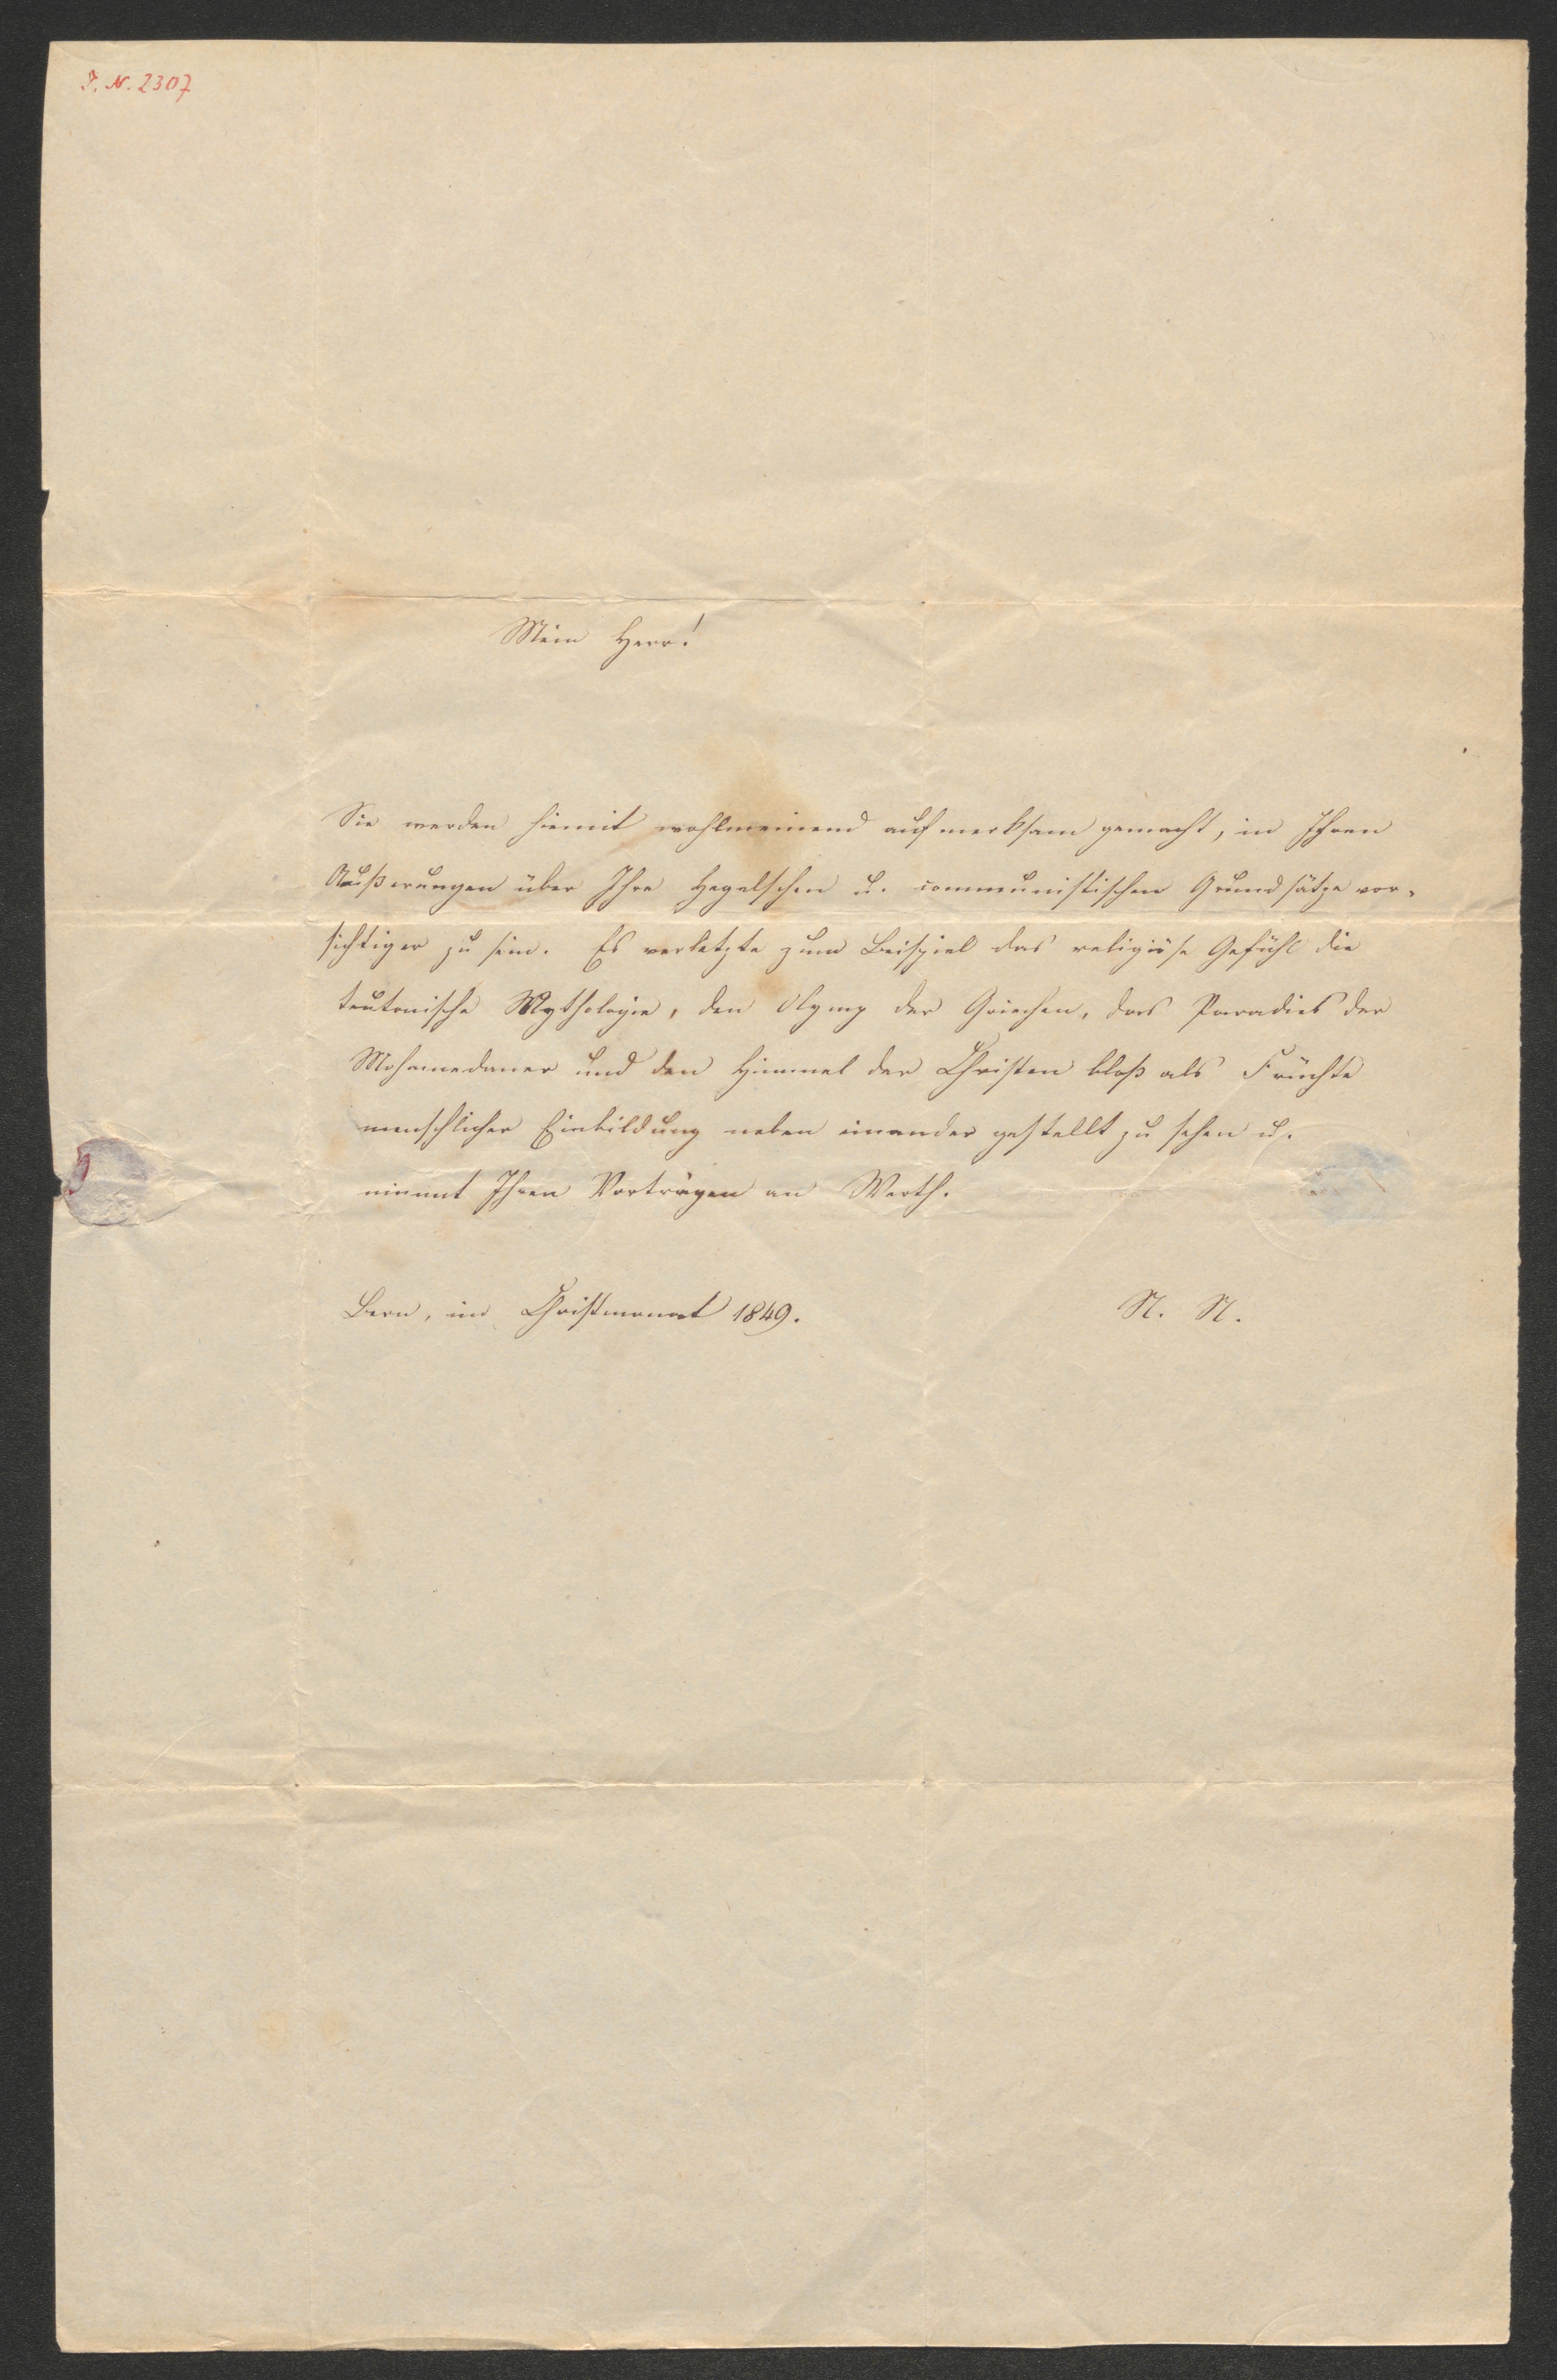 I. N. 2307
Mein Herr!
Sie werden hiemit wohlmeinend aufmerksam gemacht, in Ihren
Äußerungen über Ihre Hegelschen u. communistischen Grundsätze vor-
sichtiger zu sein. Es verletzte zum Beispiel das religiöse Gefühl die
teutonische Mythologie, den Olymp der Griechen, das Paradies der
Mohamedaner und den Himmel der Christen bloß als Früchte
menschlicher Einbildung neben einander gestellt zu sehen u.
nimmt Ihren Vorträgen an Werth.
Bern, im Christmonat 1849. N. N.